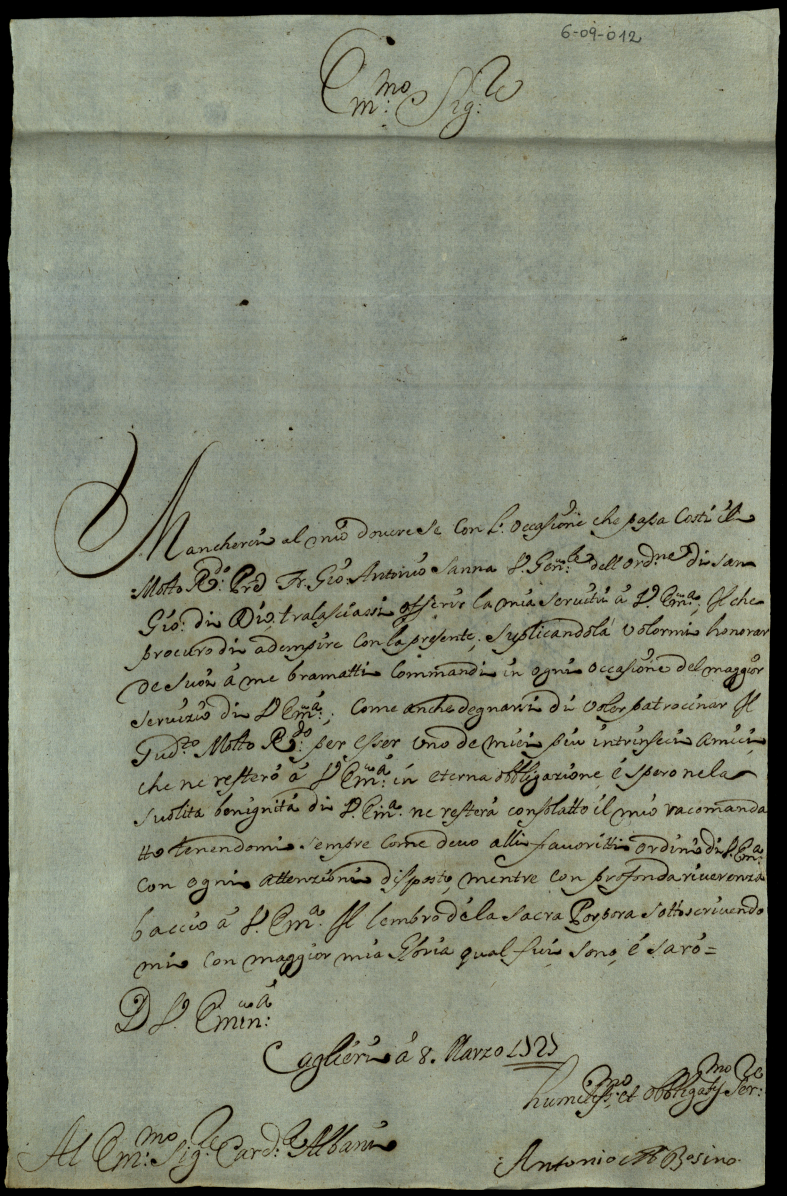 6-09-012
Em:mo Sig:re
Mancherei al mio dovere se con l'occasione che passa costì il
Molto Rdo: Prd Fr. Gio: Antonio Sanna P. Genle: dell'ordne di San
Gio: di Dio, tralasciassi offerir la mia servitù à V. Ema:, Il che
procuro di adempire con la presente, suplicandola volermi honorar
de suoi à me bramatti Commandi in ogni occasione del maggior
servizio di V. Ema:, come anche degnarsi di voler patrocinar Il
Sud:to Molto Rdo: per esser uno de miei più intrinseci amici,
che ne resterò à V. Ema: in eterna obbligazione, è spero nela
suolita benignità di V. Ema: ne resterà consolatto il mio racomanda
tto tenendomi sempre come devo alli favoritti ordini di V. Ema:
con ogni attenzioni disposto, mentre con profonda riverenza
baccio à V. Ema: Il lembro dela sacra Porpora sottoscrivendo
mi con maggior mia Gloria qual fui, sono, è sarò =
D V. Emin:a
Caglieri à 8. Marzo 1721
humiliss:mo et obbligatis:mo Ser:re
Al Em:mo Sig:re Card:le Albani
Antonio Bosino